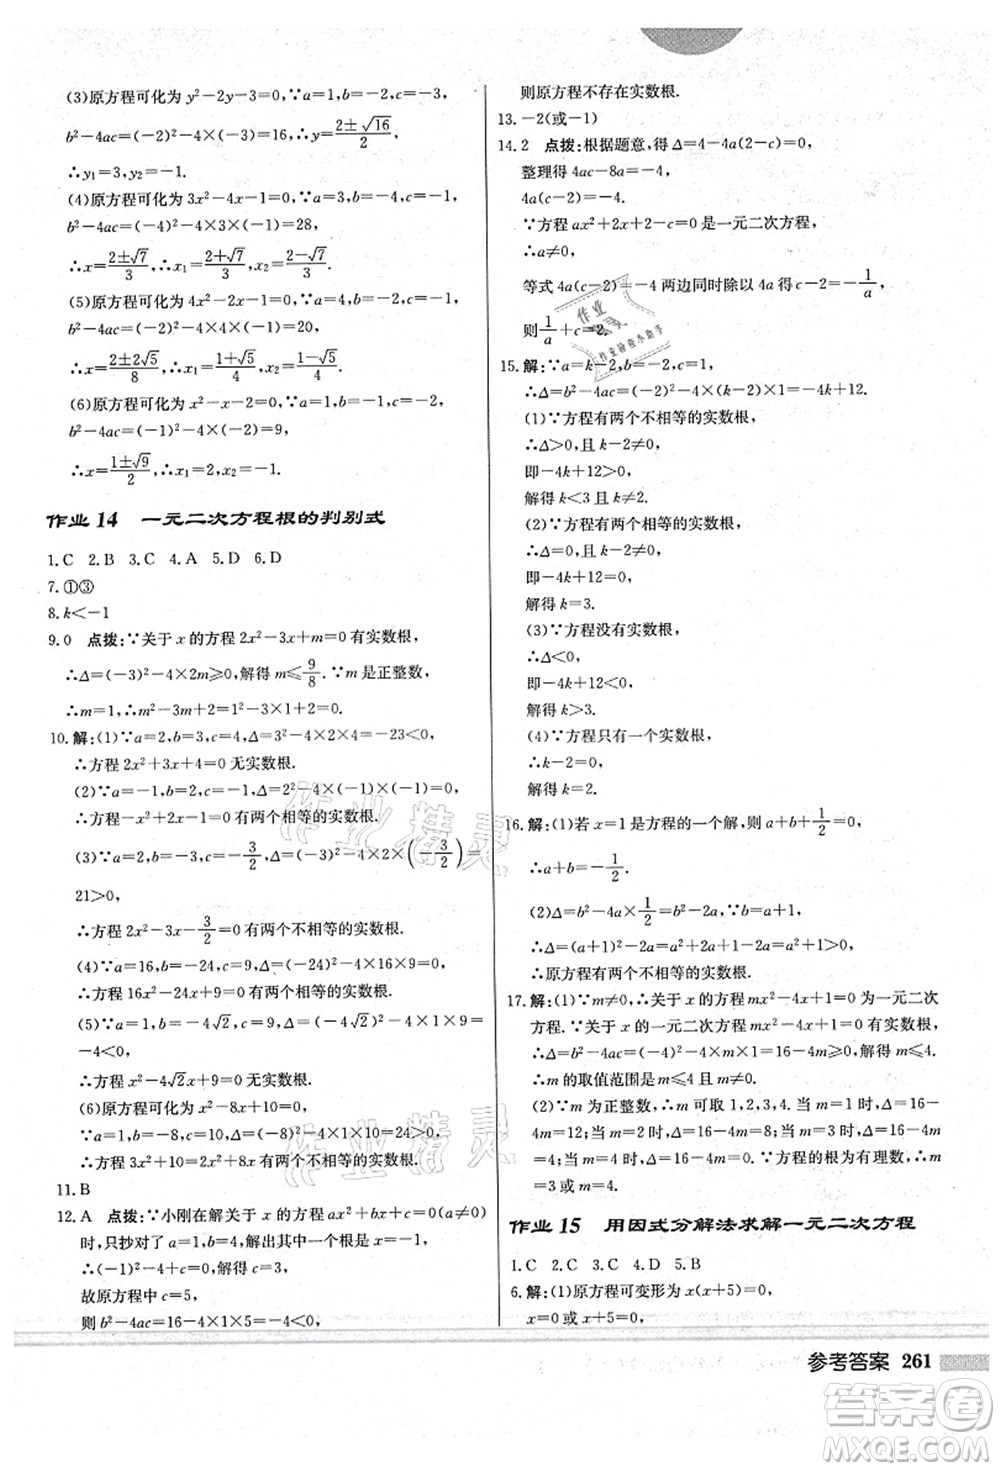 (3)原方程可化为 y²-2y-3=0,∵a=1,b=-2,c=-3,
b²-4ac=(-2)²-4×(-3)=16,∴y=(2±√16)/2.
∴y₁=3,y₂=-1.
(4)原方程可化为 3x²-4x-1=0,∵a=3,b=-4,c=-1,
b²-4ac=(-4)²-4×3×(-1)=28,
∴x=(2±√7)/3,∴x₁=(2+√7)/3,x₂=(2-√7)/3.
(5)原方程可化为 4x²-2x-1=0,∵a=4,b=-2,c=-1,
b²-4ac=(-2)²-4×4×(-1)=20,
∴x=(2±2√5)/8,∴x₁=(1+√5)/4,x₂=(1-√5)/4.
(6)原方程可化为 x²-x-2=0,∵a=1,b=-1,c=-2,
b²-4ac=(-1)²-4×1×(-2)=9,
∴x=(1±√9)/2,∴x₁=2,x₂=-1.
作业 14 一元二次方程根的判别式
1.C 2.B 3.C 4.A 5.D 6.D
7.①③
8.k<-1
9.0 点拨:∵关于 x 的方程 2x²-3x+m=0 有实数根,
∴Δ=(-3)²-4×2m≥0,解得 m≤9/8.∵m 是正整数,
∴m=1,∴m²-3m+2=1²-3×1+2=0.
10.解:(1)∵a=2,b=3,c=4,Δ=3²-4×2×4=-23<0,
∴方程 2x²+3x+4=0 无实数根.
(2)∵a=-1,b=2,c=-1,Δ=2²-4×(-1)×(-1)=0,
∴方程-x²+2x-1=0 有两个相等的实数根.
(3)∵a=2,b=-3,c=-3/2,Δ=(-3)²-4×2×(-3/2)=
21>0,
∴方程 2x²-3x-3/2=0 有两个不相等的实数根.
(4)∵a=16,b=-24,c=9,Δ=(-24)²-4×16×9=0,
∴方程 16x²-24x+9=0 有两个相等的实数根.
(5)∵a=1,b=-4√2,c=9,Δ=(-4√2)²-4×1×9=
-4<0,
∴方程 x²-4√2x+9=0 无实数根.
(6)原方程可化为 x²-8x+10=0,
∵a=1,b=-8,c=10,Δ=(-8)²-4×1×10=24>0,
∴方程 3x²+10=2x²+8x 有两个不相等的实数根.
11.B
12.A 点拨:∵小刚在解关于 x 的方程 ax²+bx+c=0(a≠0)
时,只抄对了 a=1,b=4,解出其中一个根是 x=-1,
∴(-1)²-4+c=0,解得 c=3,
故原方程中 c=5,
则 b²-4ac=16-4×1×5=-4<0,
则原方程不存在实数根.
13.-2(或-1)
14.2 点拨:根据题意,得 Δ=4-4a(2-c)=0,
整理得 4ac-8a=-4,
4a(c-2)=-4.
∵方程 ax²+2x+2-c=0 是一元二次方程,
∴a≠0,
等式 4a(c-2)=-4 两边同时除以 4a 得 c-2=-1/a,
则1/a+c=2.
15.解:∵a=k-2,b=-2,c=1,
∴Δ=b²-4ac=(-2)²-4×(k-2)×1=-4k+12.
(1)∵方程有两个不相等的实数根,
∴Δ>0,且 k-2≠0,
即-4k+12>0,
解得 k<3 且 k≠2.
(2)∵方程有两个相等的实数根,
∴Δ=0,且 k-2≠0,
即-4k+12=0,
解得 k=3.
(3)∵方程没有实数根,
∴Δ<0,
即-4k+12<0,
解得 k>3.
(4)∵方程只有一个实数根,
∴k-2=0,
解得 k=2.
16.解:(1)若 x=1 是方程的一个解,则 a+b+1/2=0,
∴a+b=-1/2.
(2)Δ=b²-4a×1/2=b²-2a,∵b=a+1,
∴Δ=(a+1)²-2a=a²+2a+1-2a=a²+1>0,
∴原方程有两个不相等的实数根.
17.解:(1)∵m≠0,∴关于 x 的方程 mx²-4x+1=0 为一元二次
方程.∵关于 x 的一元二次方程 mx²-4x+1=0 有实数根,
∴Δ=b²-4ac=(-4)²-4×m×1=16-4m≥0,解得 m≤4.
∴m 的取值范围是 m≤4 且 m≠0.
(2)∵m 为正整数,∴m 可取 1,2,3,4.当 m=1 时,Δ=16-
4m=12;当 m=2 时,Δ=16-4m=8;当 m=3 时,Δ=16-
4m=4;当 m=4 时,Δ=16-4m=0.∵方程的根为有理数,∴m
=3 或 m=4.
作业 15 用因式分解法求解一元二次方程
1.C 2.C 3.C 4.D 5.B
6.解:(1)原方程可变形为 x(x+5)=0,
x=0 或 x+5=0,
参考答案 261
作业
作业检查小助手
作业精灵
作业精灵
答案圈
MXQE.COM